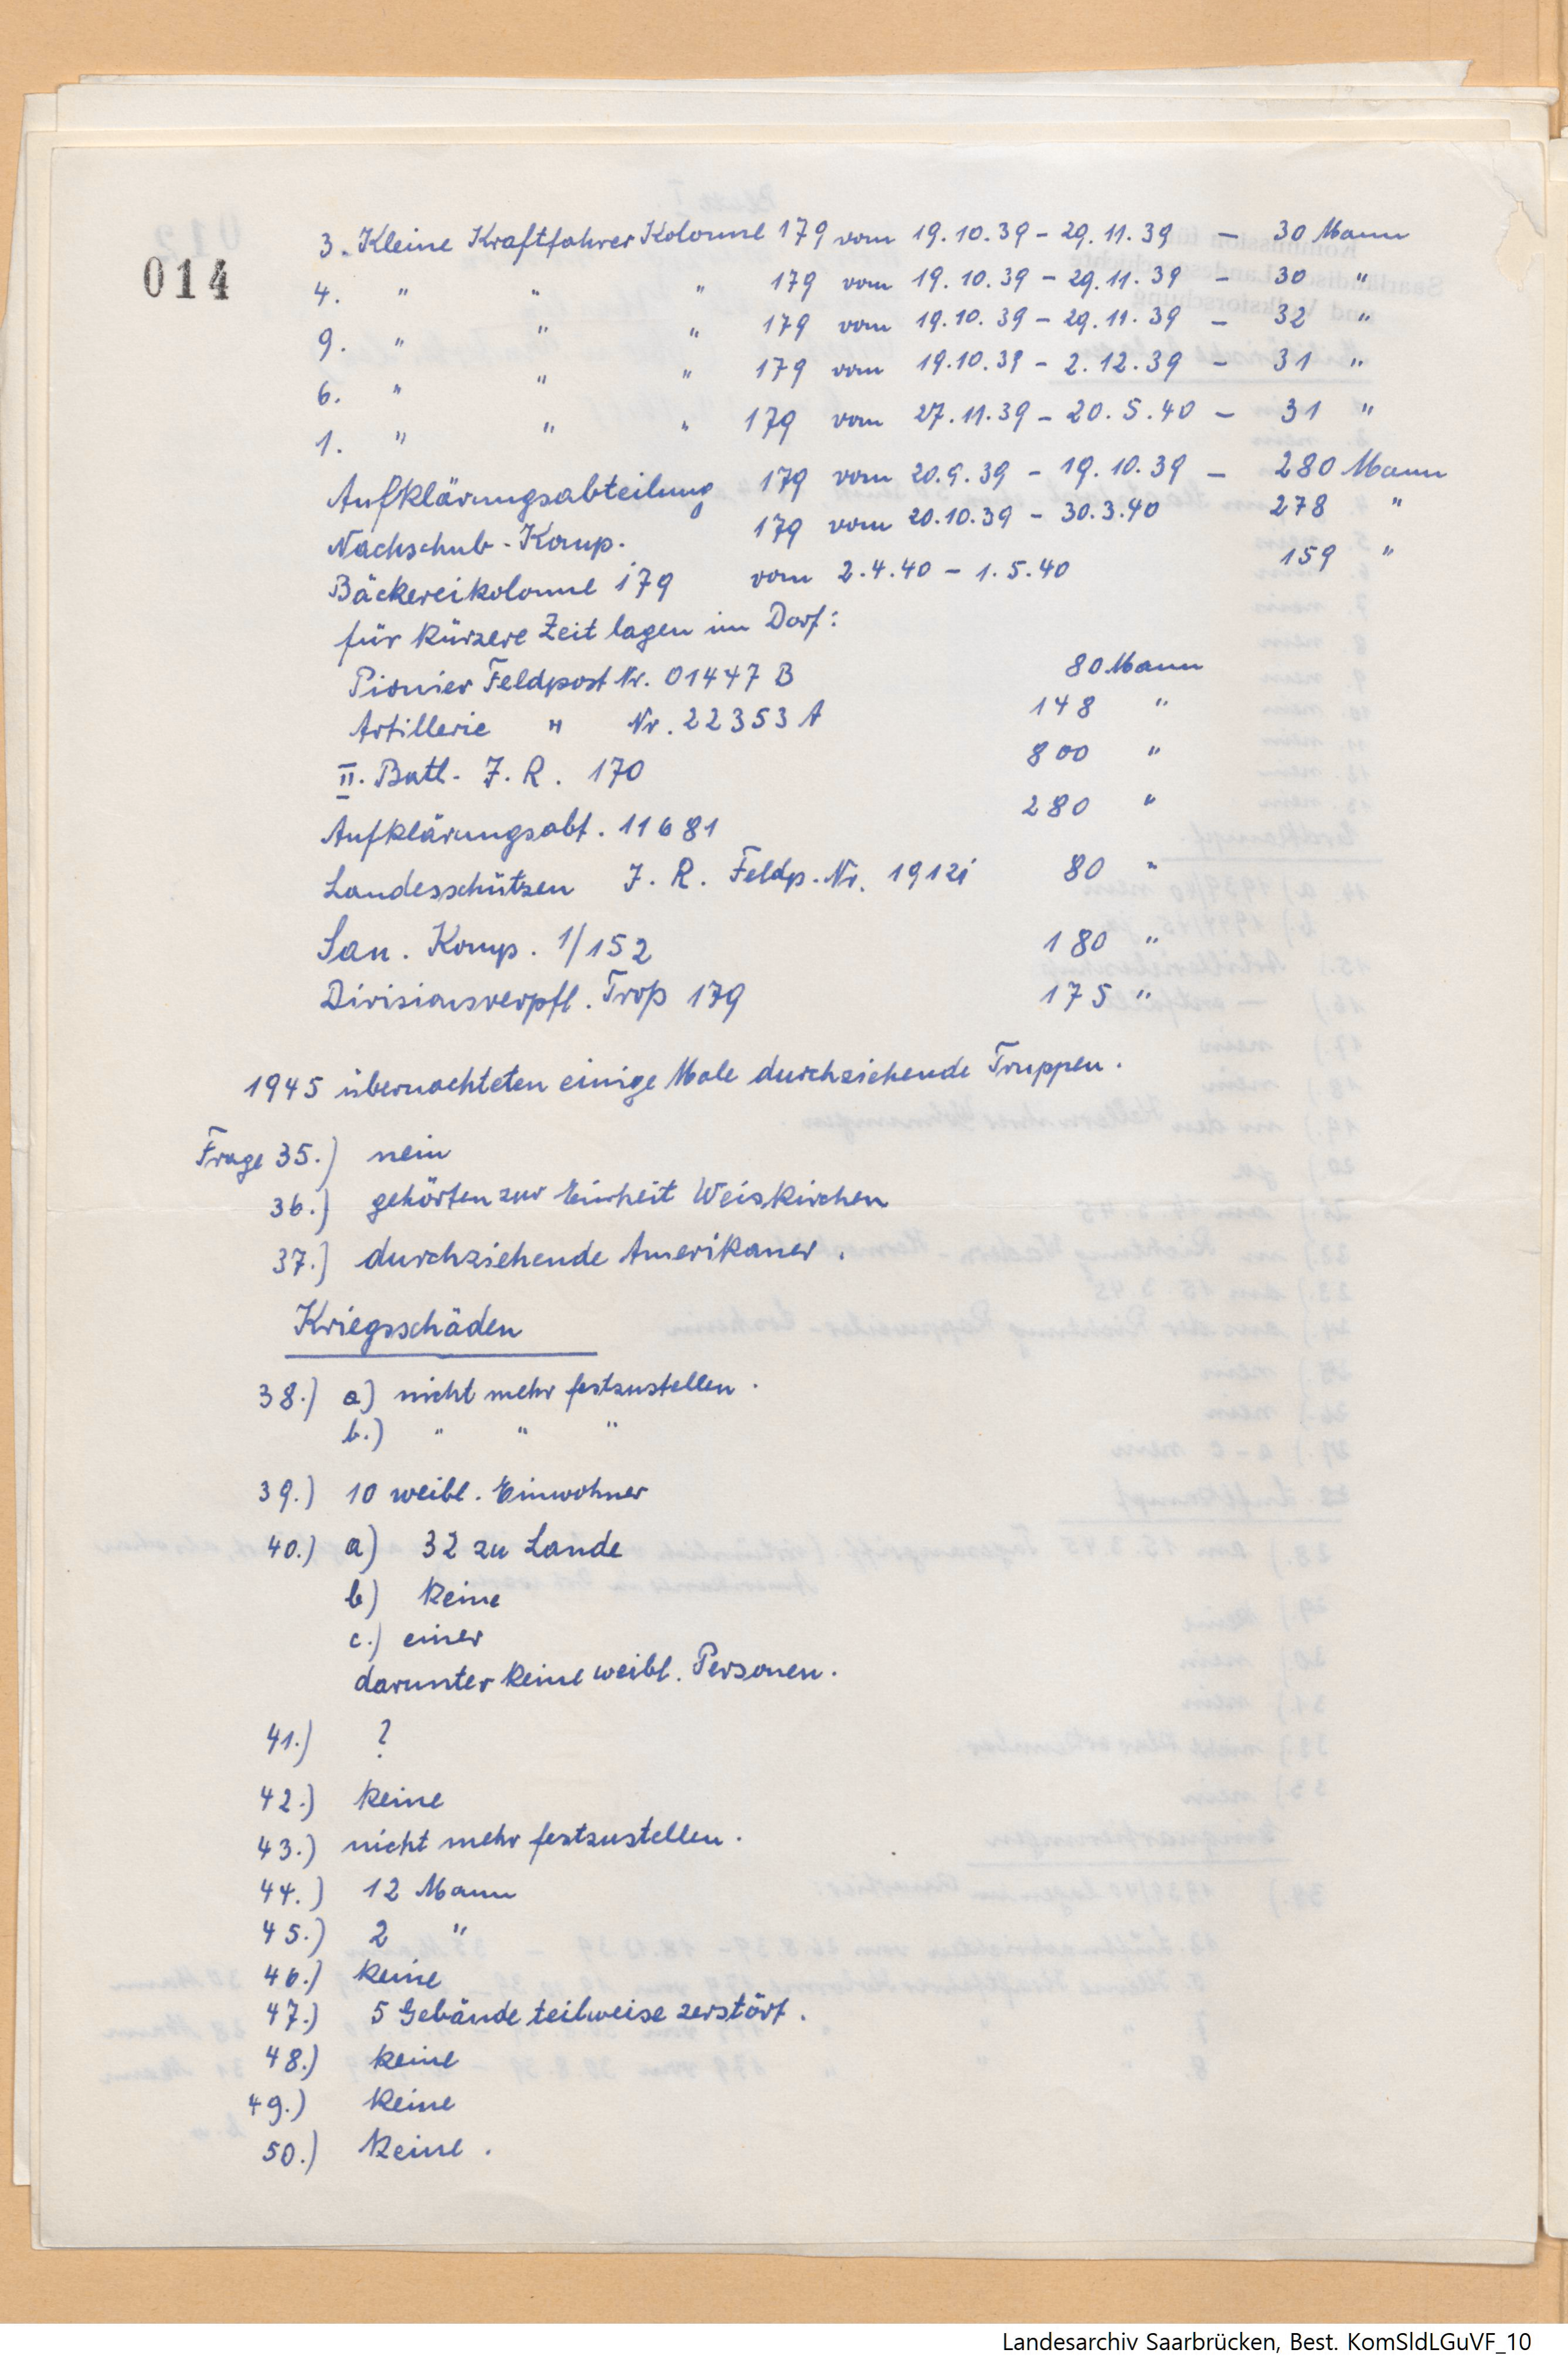 014
3. Kleine Kraftfahrer Kolonne 179 vom 19.10.39 – 29.11.39 – 30 Mann
4. " " " 179 vom 19.10.39 – 29.11.39 – 30 "
9. " " " 179 vom 19.10.39 – 29.11.39 – 32 "
6. " " " 179 vom 19.10.39 – 2.12.39 – 31 "
1. " " " 179 vom 27.11.39 – 20.5.40 – 31 "
Aufklärungsabteilung 179 vom 20.9.39 – 19.10.39 – 280 Mann
Nachschub-Komp. 179 vom 20.10.39 – 30.3.40 278 "
Bäckereikolonne 179 vom 2.4.40 – 1.5.40 159 "
für kürzere Zeit lagen im Dorf:
Pionier Feldpost Nr. 01447 B 80 Mann
Artillerie " Nr. 22353 A 148 "
II. Batl. J.R. 170 800 "
Aufklärungsabt. 11681 280 "
Landesschützen J.R. Feldp.-Nr. 80 "
San. Komp. 1/152 180 "
Divisionsverpfl. Trop 179 175 "
1945 übernachteten einige Male durchziehende Truppen.
Frage 35.) nein
36.) gehörten zur Einheit Weiskirchen
37.) durchziehende Amerikaner.
Kriegsschäden
38.) a) nicht mehr festzustellen.
b.) " " "
39.) 10 weibl. Einwohner
40.) a) 32 zu Lande
b) keine
c.) einer
darunter keine weibl. Personen.
41.) ?
42.) keine
43.) nicht mehr festzustellen.
44.) 12 Mann
45.) 2 "
46.) keine
47.) 5 Gebäude teilweise zerstört.
48.) keine
49.) keine
50.) keine.
Landesarchiv Saarbrücken, Best. KomSldLGuVF_10